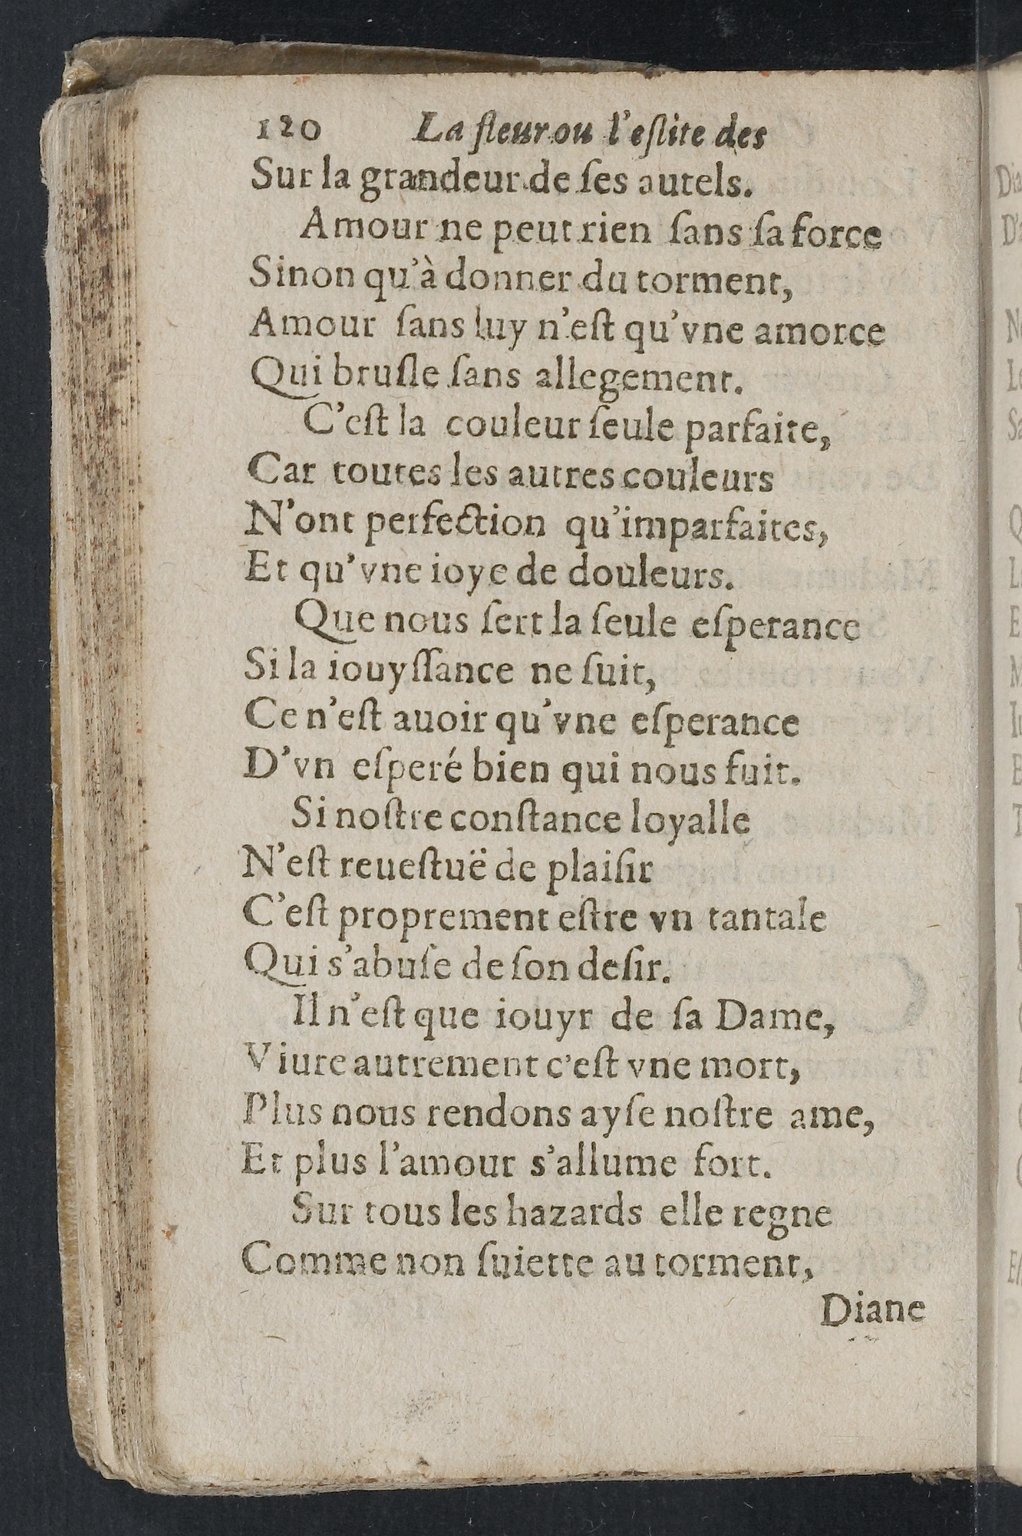 120 La fleur ou l'eſlite des
Sur la grandeur de ſes autels.
Amour ne peut rien ſans ſa force
Sinon qu'à donner du torment,
Amour ſans luy n'eſt qu'vne amorce
Qui bruſle ſans allegement.
C'eſt la couleur ſeule parfaite,
Car toutes les autres couleurs
N'ont perfection qu'imparfaites,
Et qu'vne ioye de douleurs.
Que nous ſert la ſeule eſperance
Si la iouyſſance ne ſuit,
Ce n'eſt auoir qu'vne eſperance
D'vn eſperé bien qui nous fuit.
Si noſtre conſtance loyalle
N'eſt reueſtuë de plaiſir
C'eſt proprement eſtre vn tantale
Qui s'abuſe de ſon deſir.
Il n'eſt que iouyr de ſa Dame,
Viure autrement c'eſt vne mort,
Plus nous rendons ayſe noſtre ame,
Et plus l'amour s'allume fort.
Sur tous les hazards elle regne
Comme non ſuiette au torment,
Diane